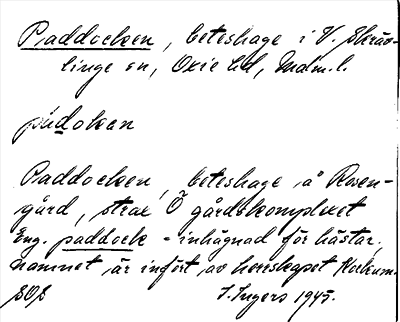 Paddocken, beteshage i V. Skräv-
linge sn, Oxie hd, Mdm.l.
pádokan
Paddocken, beteshage å Rosen-
gård, strax Ö gårdskomplexet
Eng. paddock = inhägnad för hästar.
Namnet är infört av herrskapet Kockum.
I. Ingers 1945.